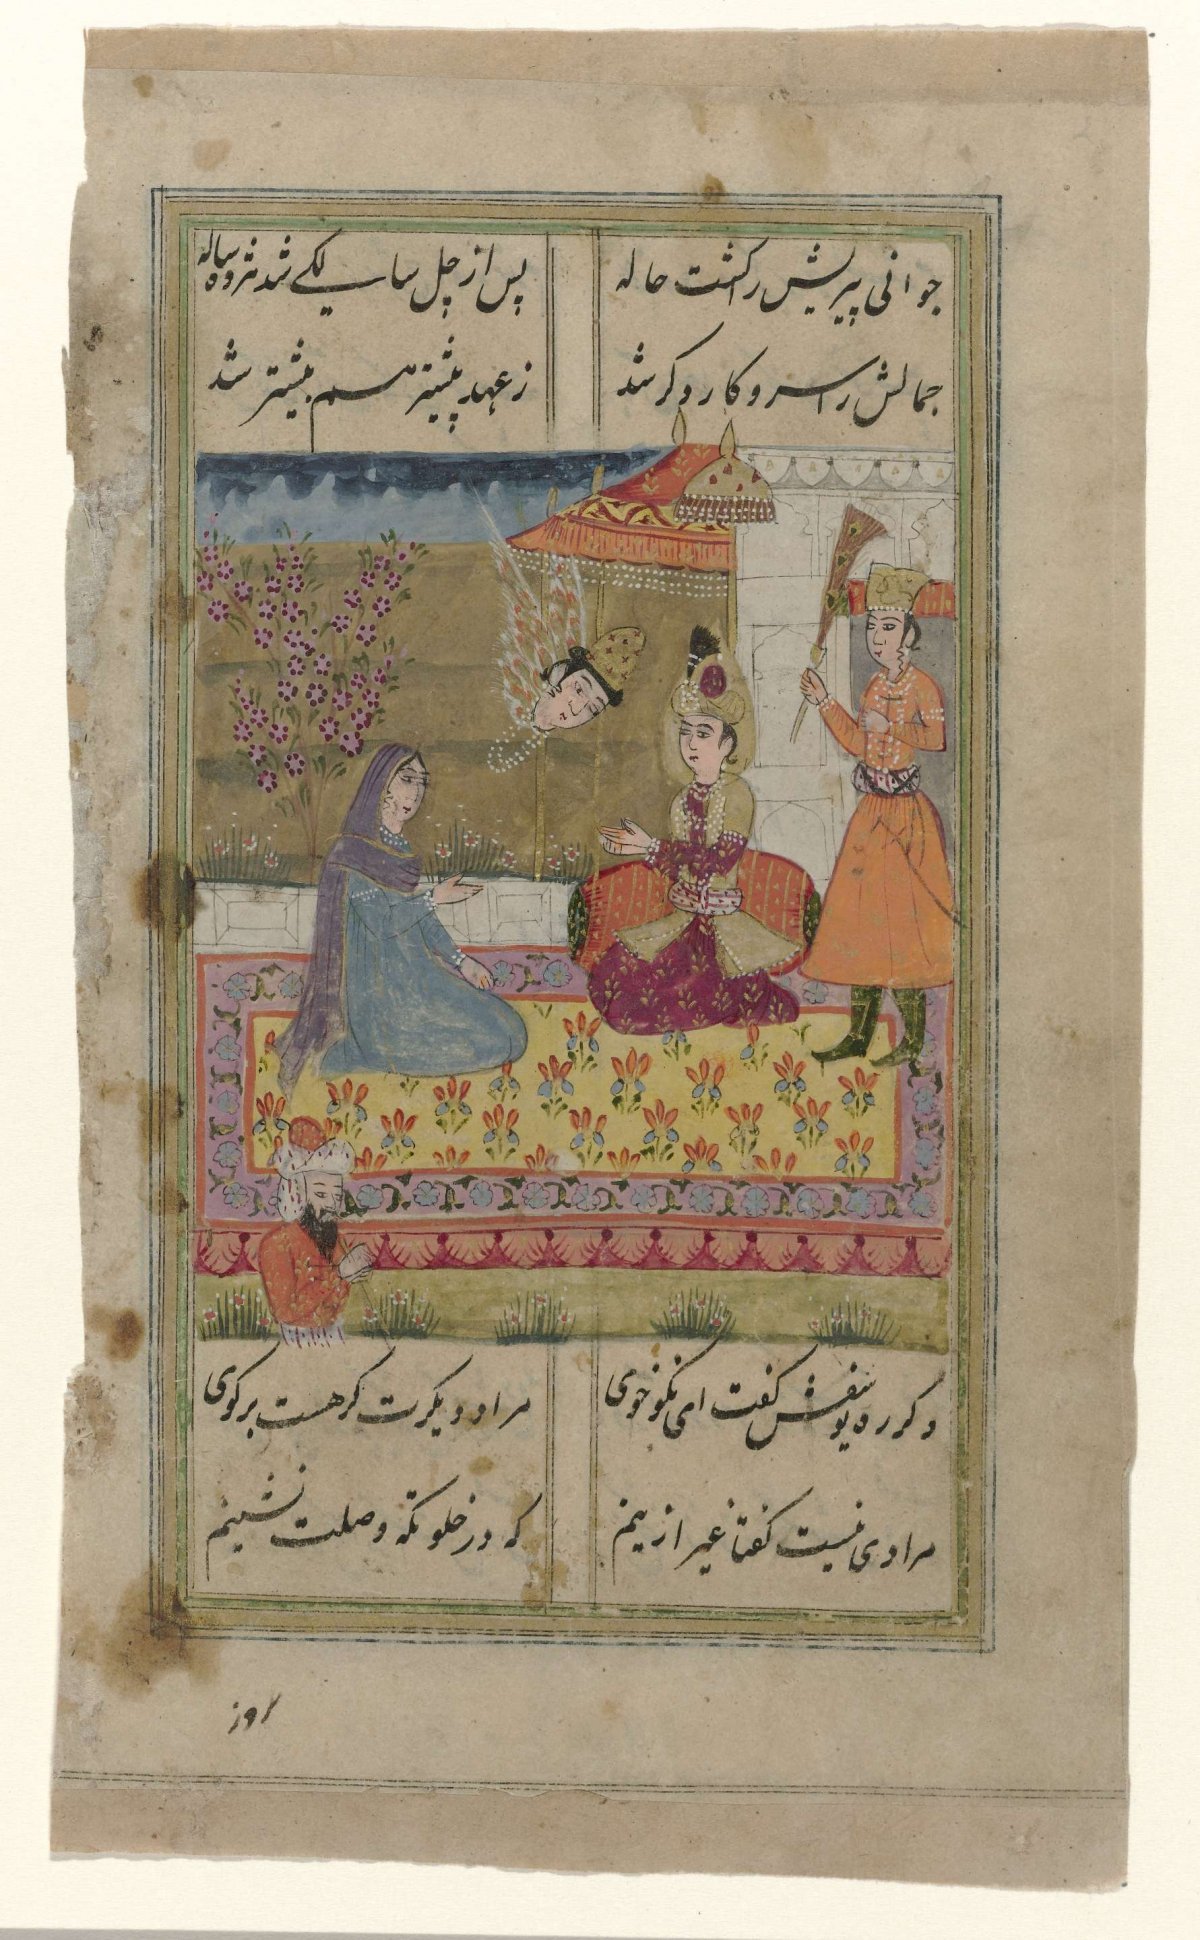 جوانی پیریش را کشت حاله پس از چل سالکی شد هژده ساله
جمالش را سر و کار دکر شد ز عهد پیشتر هم بیشتر شد
دکر ره یوسفش کفت ای نکو خوی مراد دیکرت کر هست برکوی
مرادی نیست کفتا غیر ازینم که در خلوتکه وصلت نشینم
روز